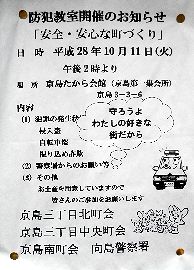 防犯教室開催のお知らせ
「安全・安心な町づくり」
日 時 平成28年10月11日(火)
午後2時より
場 所 京島たから会館(京島第一集会所)
京島3-3-6
内容
(1) 犯罪の発生
侵入盗
自転車盗
振り込め詐欺
(2) 警察署からのお願い等
(3) その他
守ろうよ
わたしの好きな
街だから
お土産を用意していますので
皆さんのご参加をお願いします
京島三丁目北町会
京島三丁目中央町会
京島南町会 向島警察署